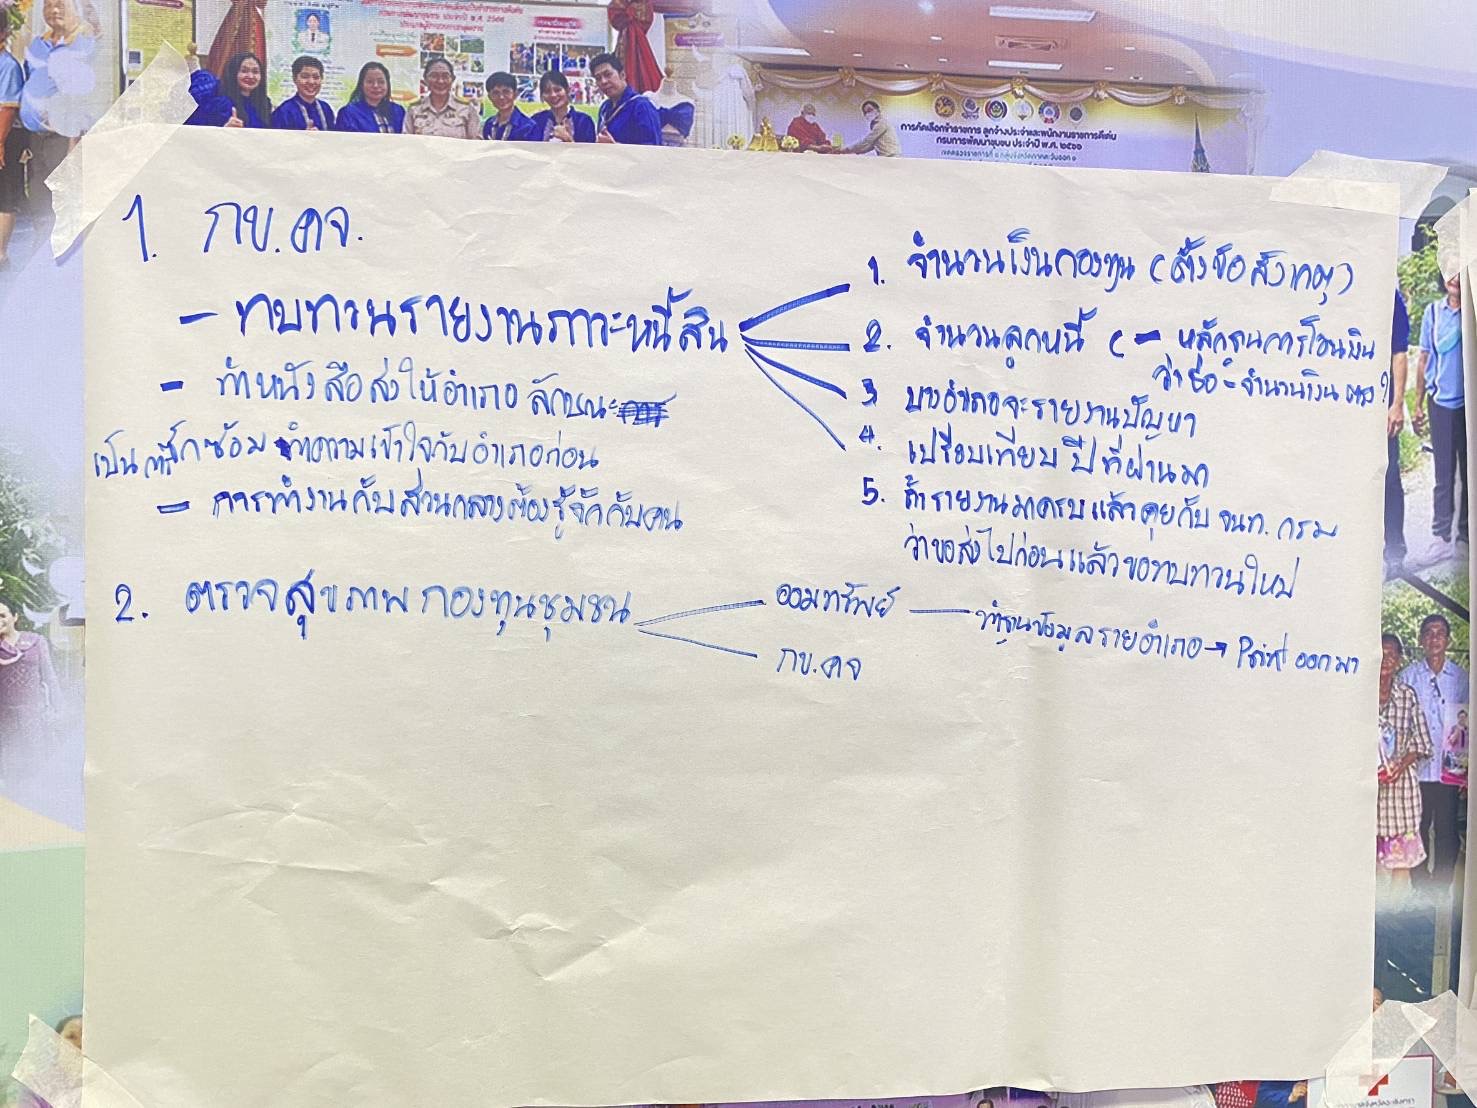 การคัดเลือกข้าราชการ ลูกจ้างประจำและพนักงานราชการดีเด่น
กรมการพัฒนาชุมชน ประจำปี พ.ศ. ๒๕๖๖
1. กข.คจ.
- ทบทวนรายงานภาวะหนี้สิน
- ทำหนังสือส่งให้อำเภอ ลักษณะ
เป็นการซักซ้อม ทำความเข้าใจกับอำเภอก่อน
- การทำงานกับส่วนกลางต้องรู้จักกับคน
1. จำนวนเงินกองทุน (ตั้งข้อสังเกต)
2. จำนวนลูกหนี้ (- หลักฐานการโอนเงิน
ว่าชื่อ - จำนวนเงิน ตรง ?
3 บางอำเภอจะรายงานปัญหา
4. เปรียบเทียบ ปีที่ผ่านมา
5. ถ้ารายงานมาครบแล้ว คุยกับ จนท. กรม
ว่าขอส่งไปก่อนแล้วขอทบทวนใหม่
2. ตรวจสุขภาพกองทุนชุมชน
ออมทรัพย์ — ทำฐานข้อมูลรายอำเภอ → Print ออกมา
กข.คจ